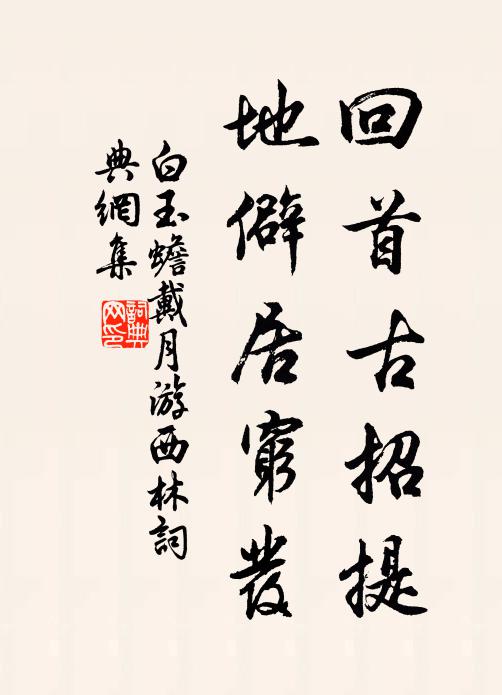 回首古招提
地僻居窮發
白玉蟾戴月游西林詞
典網集
詞典
网印